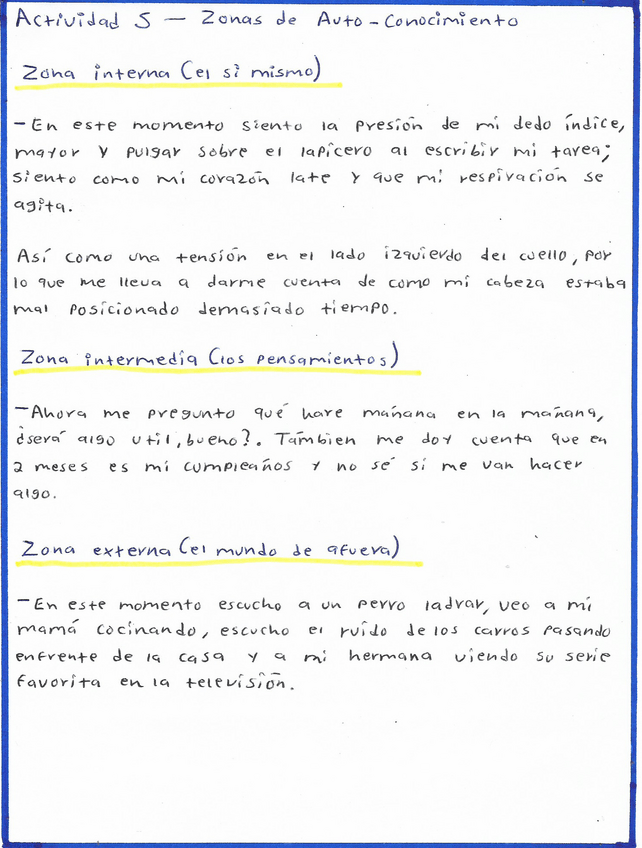 Actividad 5 — Zonas de Auto-Conocimiento
Zona interna (el si mismo)
-En este momento siento la presión de mi dedo índice,
mayor y pulgar sobre el lapicero al escribir mi tarea;
siento como mi corazón late y que mi respiración se
agita.
Así como una tensión en el lado izquierdo del cuello, por
lo que me lleva a darme cuenta de como mi cabeza estaba
mal posicionado demasiado tiempo.
Zona intermedia (los pensamientos)
-Ahora me pregunto qué hare mañana en la mañana,
¿será algo util, bueno?. Tambien me doy cuenta que en
2 meses es mi cumpleaños y no sé si me van hacer
algo.
Zona externa (el mundo de afuera)
-En este momento escucho a un perro ladrar, veo a mi
mamá cocinando, escucho el ruido de los carros pasando
enfrente de la casa y a mi hermana viendo su serie
favorita en la televisión.